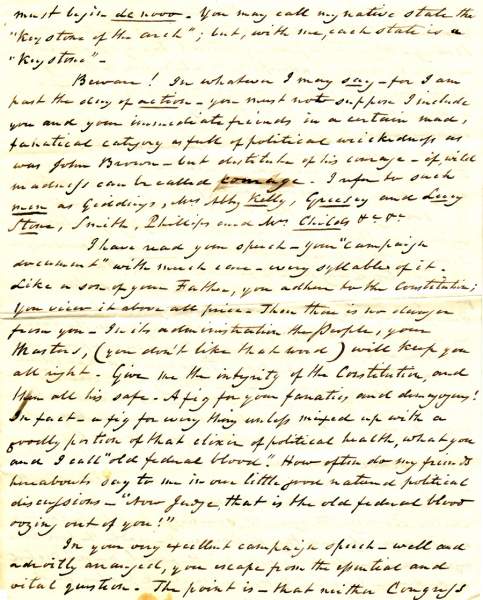 must begin de novo. You may call my native state the
"Keystone of the arch"; but, with me, each state is a
"Keystone" -
Beware! In whatever I may say - for I am
past the day of action - you must not suppose I include
you and your immediate friends in a certain mad,
fanatical category as full of political wickedness as
was John Brown - but destitute of his courage - if wild
madness can be called courage. I refer to such
men as Giddings, Mrs Abby Kelly, Greesey and Lucy
Stone, Smith, Phillips and Mrs Childs &c &c
I have read your speech - your "campaign
document" with much care - every syllable of it.
Like a son of your Father, you adhere to the Constitution;
You view it above all price - Then there is no danger
from you - In its administration the People, your
Masters, (you don't like that word) will keep you
all right. Give me the integrity of the Constitution, and
then all is safe. A fig for your fanatics, and demagogues!
In fact - a fig for every thing unless mixed up with a
goodly portion of that elixir of political health, what you
and I call "old federal blood". How often do my friends
hereabouts say to me in our little good natured political
discussions - "Now Judge, that is the old federal blood
oozing out of you!"
In your very excellent campaign speech - well and
adroitly arranged, you escape from the essential and
vital question. The point is - that neither Congress